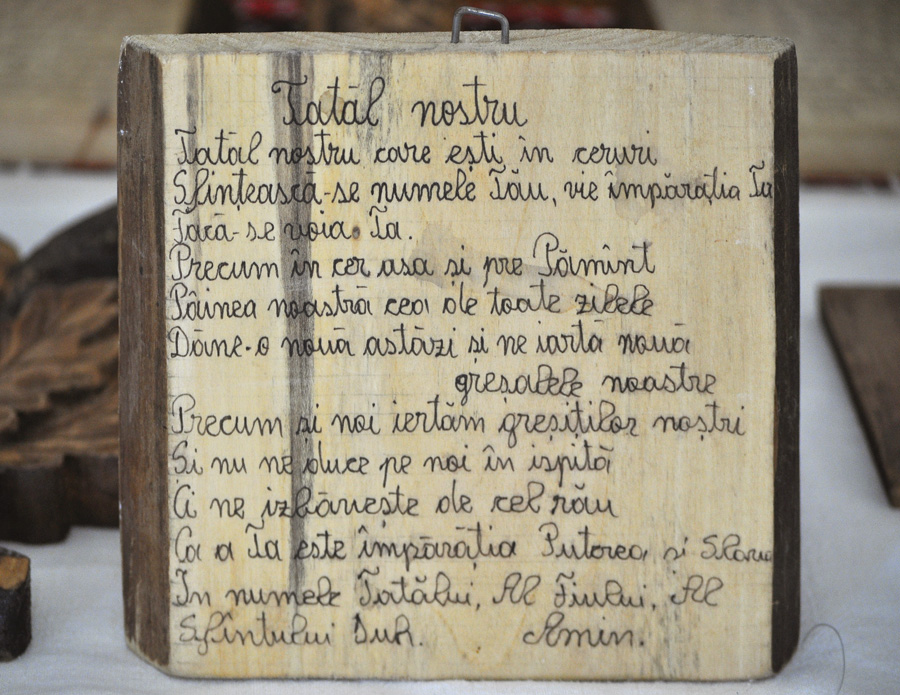 Tatăl nostru
Tatăl nostru care ești în ceruri
Sfințească-se numele Tău, vie împărăția Ta
Facă-se voia Ta.
Precum în cer așa și pre Pămînt
Pâinea noastră cea de toate zilele
Dăne-o nouă astăzi și ne iartă nouă
greșalele noastre
Precum și noi iertăm greșiților noștri
Și nu ne duce pe noi în ispită
Ci ne izbăvește de cel rău
Ca a Ta este împărăția Puterea și Slava
În numele Tatălui, Al Fiului, Al
Sfîntului Duh. Amin.